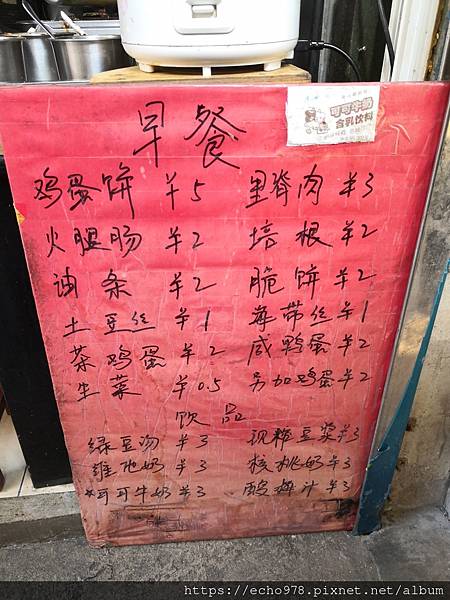 早餐
鸡蛋饼 ¥5 里脊肉 ¥3
火腿肠 ¥2 培根 ¥2
油条 ¥2 脆饼 ¥2
土豆丝 ¥1 海带丝 ¥1
茶鸡蛋 ¥2 咸鸭蛋 ¥2
生菜 ¥0.5 另加鸡蛋 ¥2
饮品
绿豆汤 ¥3 现榨豆浆 ¥3
维他奶 ¥3 核桃奶 ¥3
可可牛奶 ¥3 酸梅汁 ¥3
可可牛奶
含乳饮料
https://echo978.pixnet.net/album